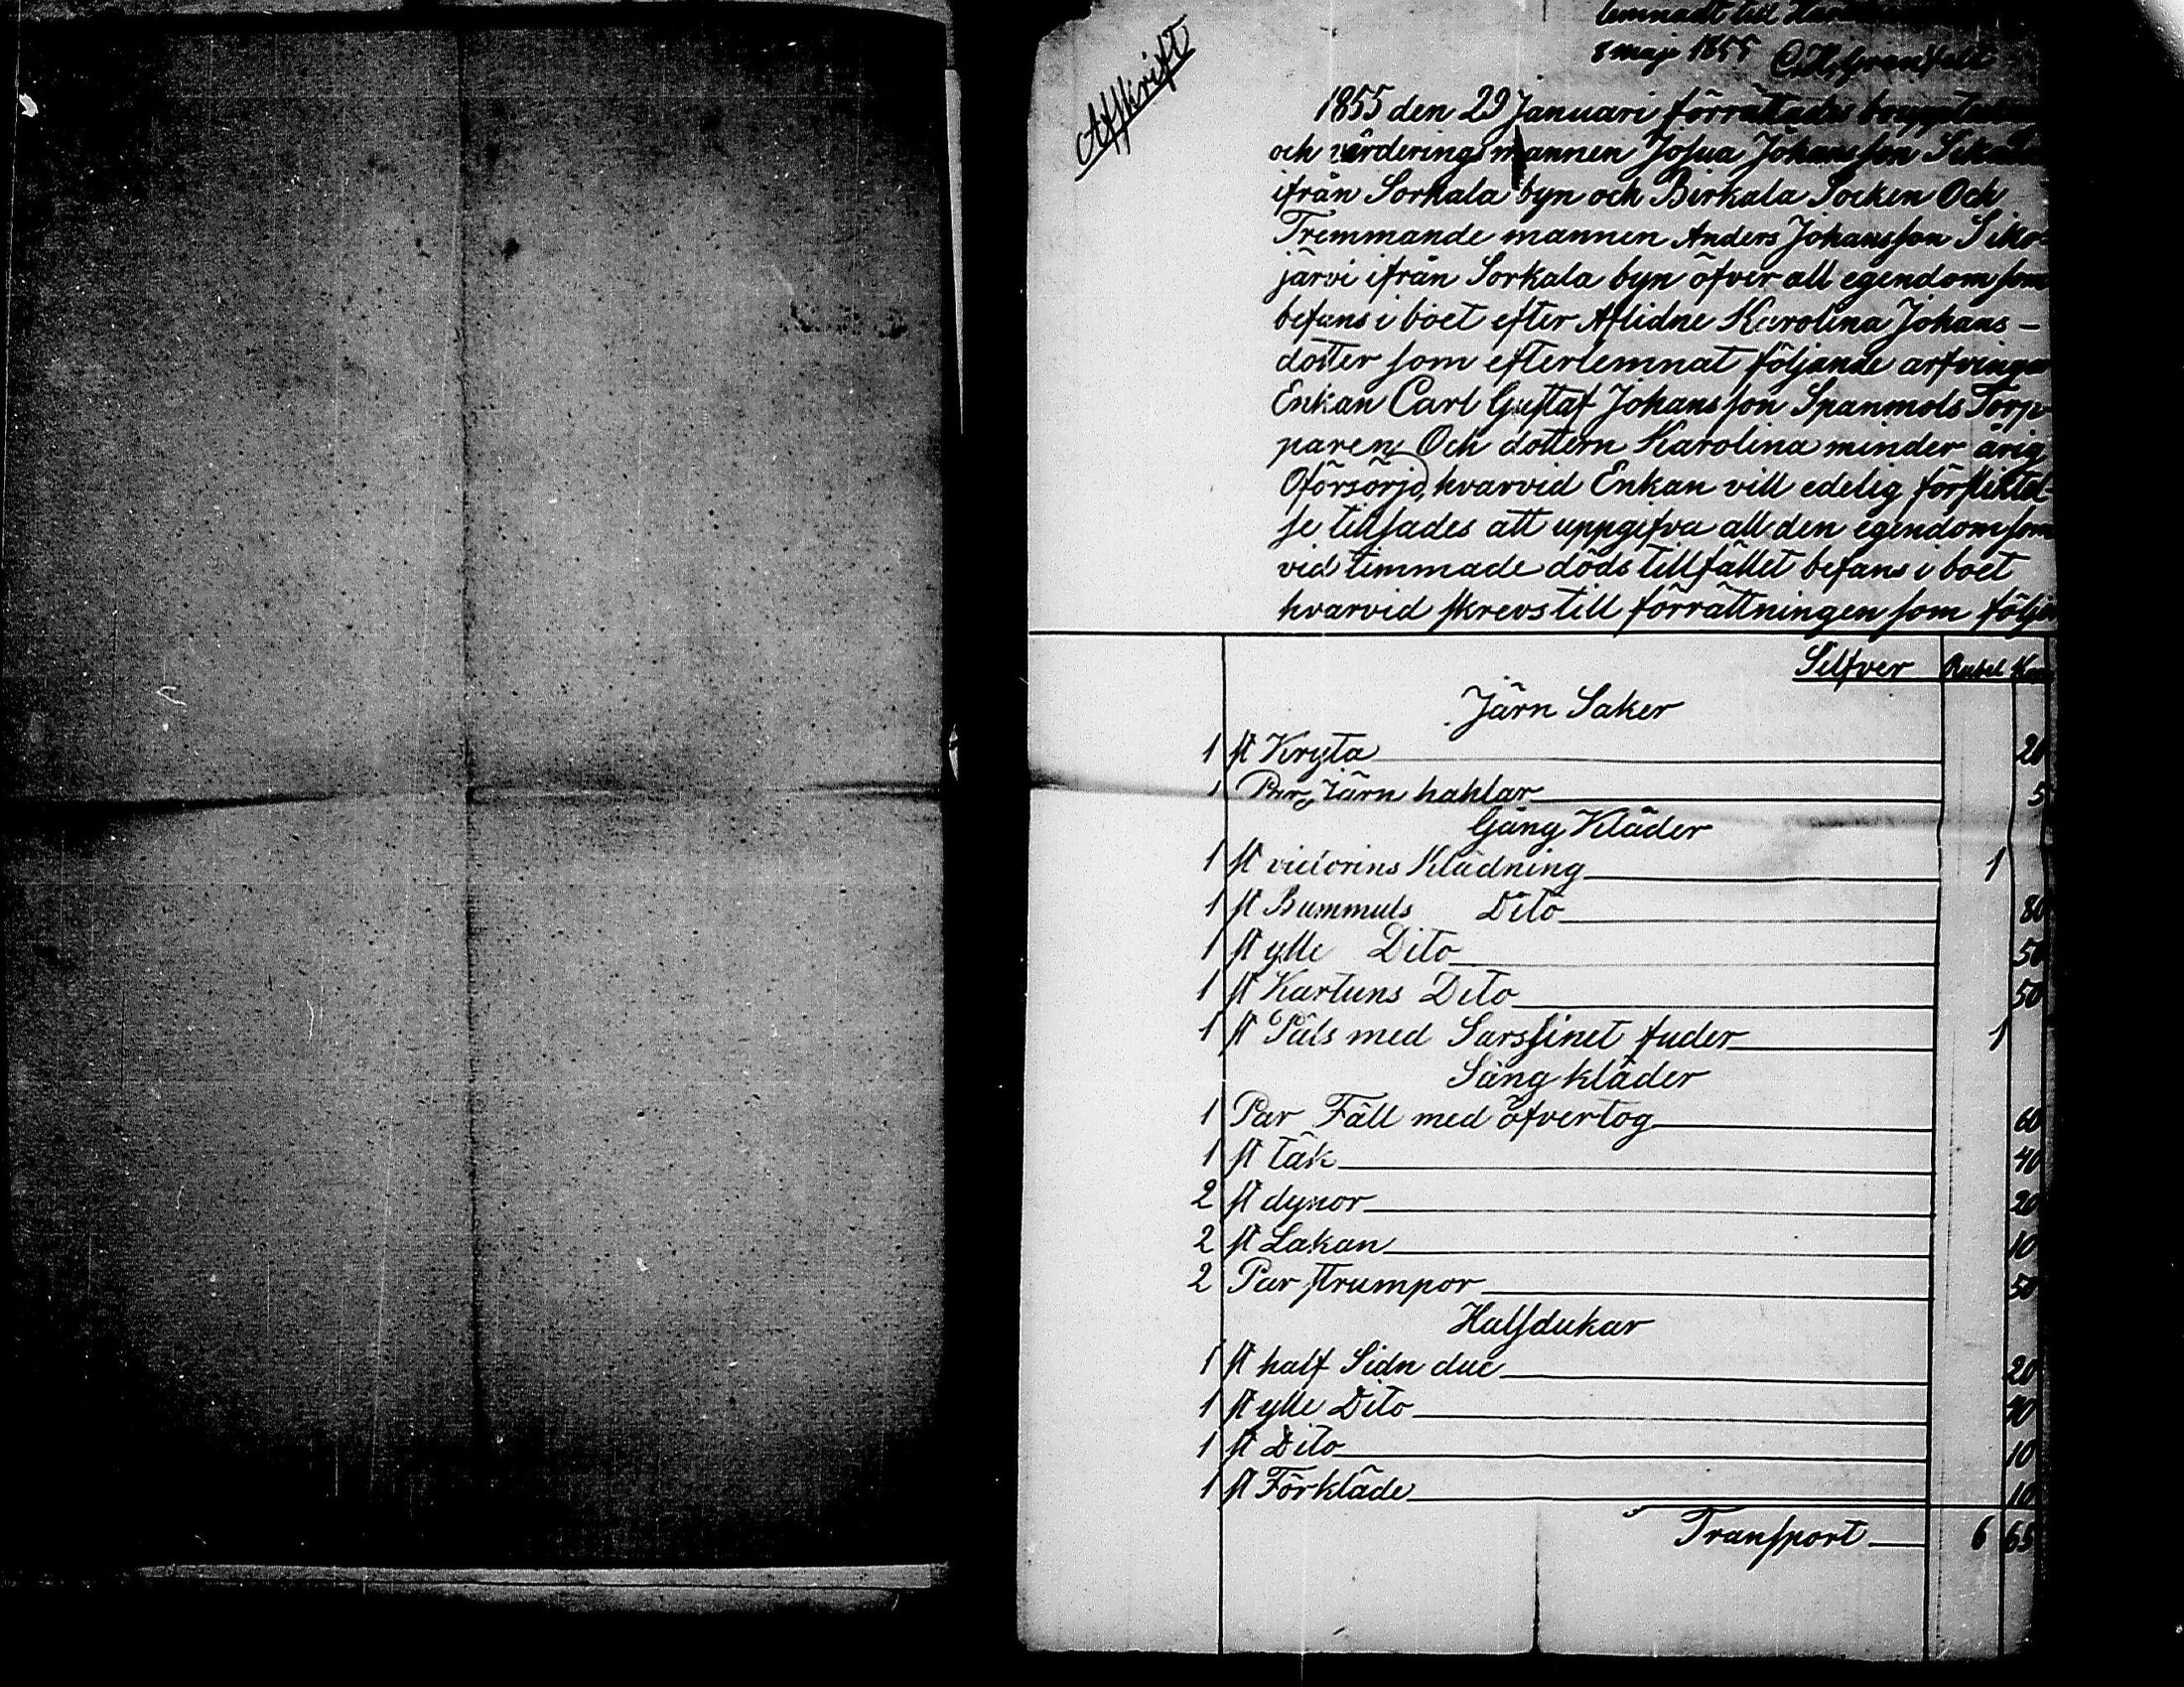 Afskrift
lemnadt till
8 maji 1855
1855 den 29 Januari förrättades
och värderings mannen Josua Johansson
ifrån Sorkala byn och Birkala Socken Och
Fremmande mannen Anders Johansson Siko-
järvi ifrån Sorkala byn öfver all egendom som
befans i boet efter Aflidne Karolina Johans-
dotter som efterlemnat följande arfvingar
Enkan Carl Gustaf Johansson Spanmols Torp-
paren Och dottern Karolina minder årig
Oförsörjd, hvarvid Enkan vill edelig
se tillsades att uppgifva all den egendom som
vid timmade döds tillfället befans i boet
hvarvid skrevs till förrättningen som följer
Silfver Rubel Kop
Järn Saker
1 st Kryta 20
1 Par Järn hahlar 5
Gång Kläder
1 st victorins Klädning 1
1 st Bummuls Dito 80
1 st ylle Dito 50
1 st Kartuns Dito 50
1 st Päls med Sarssinet fuder 1
Säng kläder
1 Par Fäll med öfvertog 60
1 st täk 40
2 st dynor 20
2 st Lakan 10
2 Par strumpor 50
Halsdukar
1 st half Sidn duc 20
1 st ylle Dito
1 st Dito 10
1 st Förkläde 10
Transport 6 65